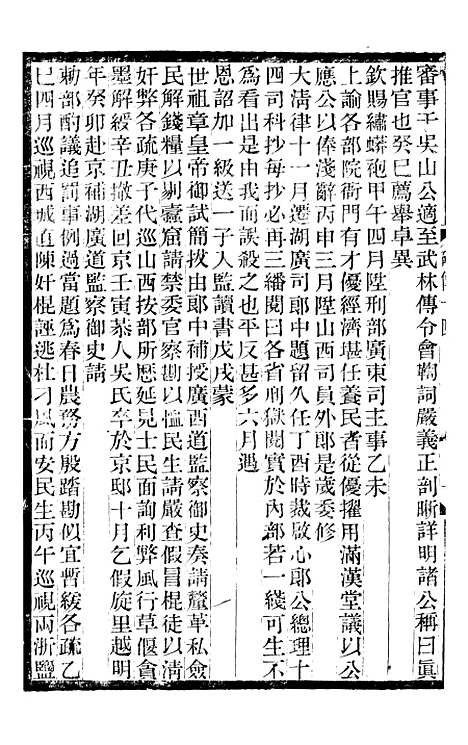 審事于吳山公適至武林傳令會鞫詞嚴義正剖晰詳明諸公稱曰眞
推官也癸巳薦舉卓異
欽賜繡蟒砲甲午四月陞刑部廣東司主事乙未
上諭各部院衙門有才優經濟堪任養民者從優擢用滿漢堂議以公
應公以俸淺辭丙申三月陞山西司員外郎是歲委修
大淸律十一月遷湖廣司郎中題留久任丁酉時裁啟心郎公總理十
四司科抄每抄必再三繙閱曰各省刑獄關實於內部若一綫可生不
爲看出是由我而誤殺之也平反甚多六月遇
恩詔加一級送一子入監讀書戊戌蒙
世祖章皇帝御試簡拔由郎中補授廣西道監察御史奏請釐革私僉
民解錢糧以剔蠹窟請禁委官察勘以恤民生請嚴查假冒棍徒以淸
奸弊各疏庚子代巡山西按部所厯延見士民面詢利弊風行草偃貪
墨解綬辛丑撤差回京壬寅恭人吳氏卒於京邸十月乞假旋里越明
年癸卯赴京補湖廣道監察御史請
勅部酌議追罰事例過當題爲春日農務方殷踏勘似宜暫緩各疏乙
巳四月巡視西城直陳奸棍誣逃杜刁風而安民生丙午巡視兩浙鹽